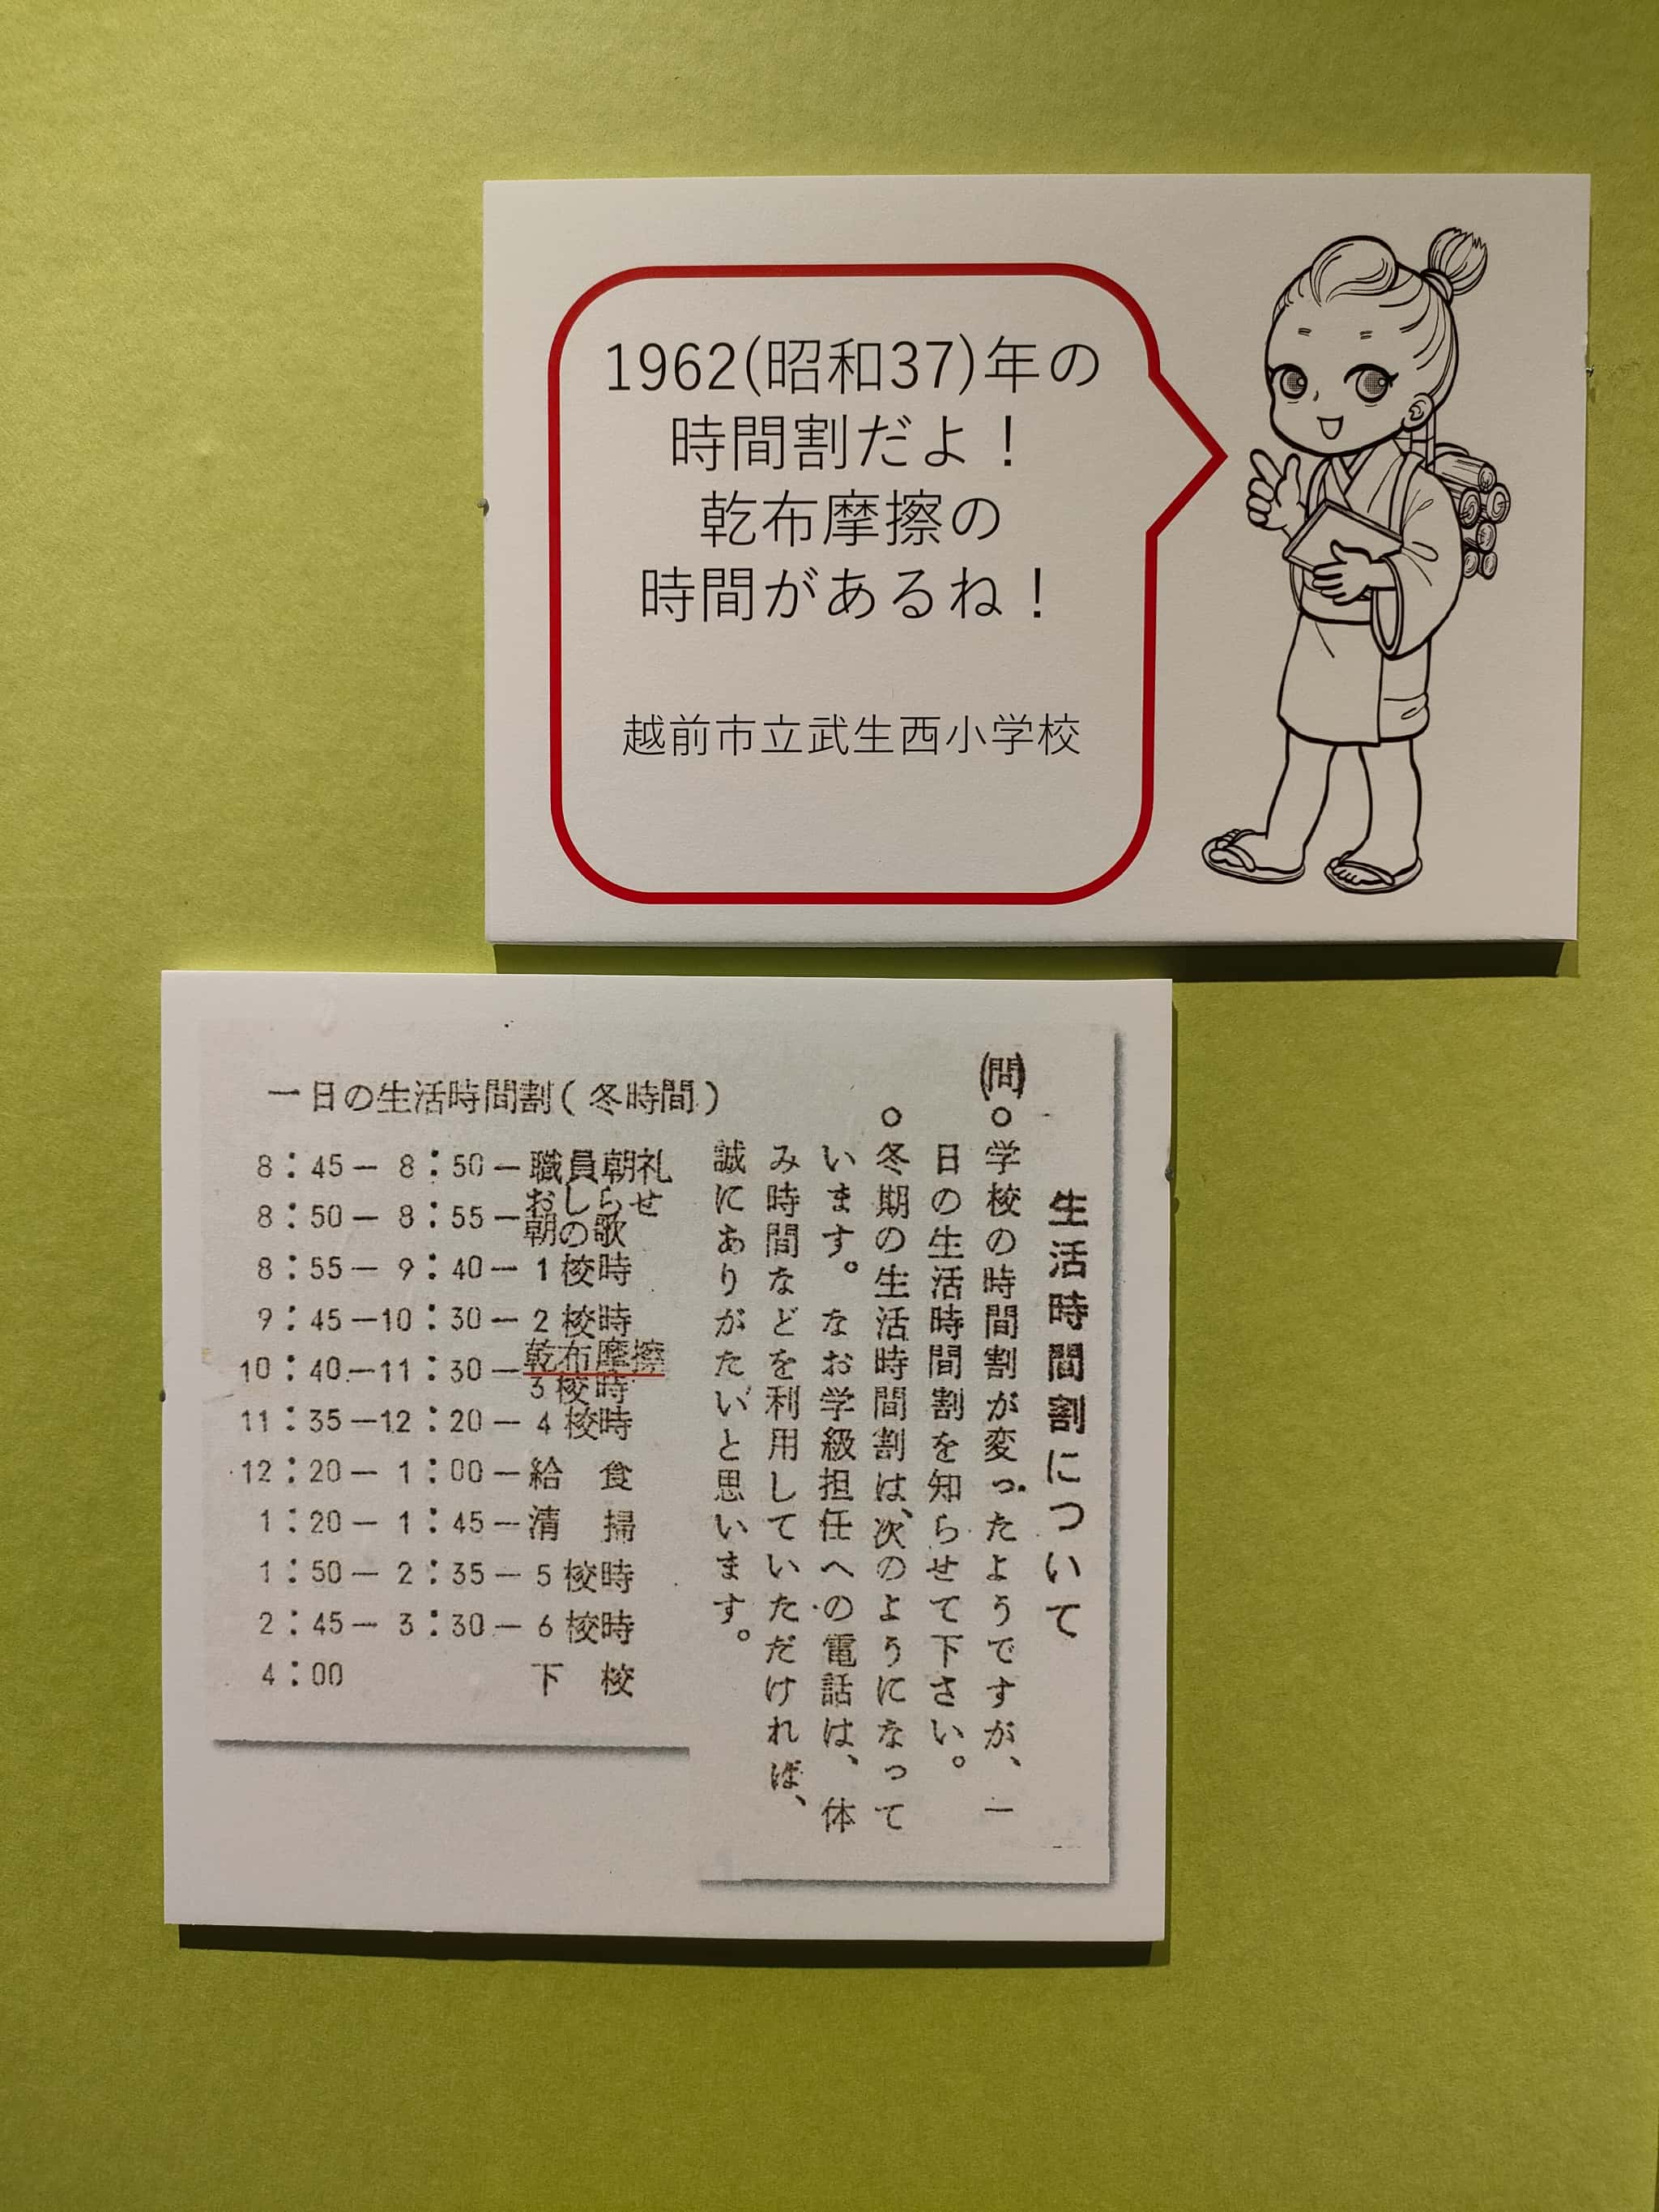 1962(昭和37)年の
時間割だよ！
乾布摩擦の
時間があるね！
越前市立武生西小学校
生活時間割について
(問)○学校の時間割が変ったようですが、一
日の生活時間割を知らせて下さい。
○冬期の生活時間割は、次のようになって
います。なお学級担任への電話は、体
み時間などを利用していただければ、
誠にありがたいと思います。
一日の生活時間割(冬時間)
8：45－8：50－職員朝礼
8：50－8：55－おしらせ
朝の歌
8：55－9：40－1校時
9：45－10：30－2校時
10：40－11：30－乾布摩擦
3校時
11：35－12：20－4校時
12：20－1：00－給　食
1：20－1：45－清　掃
1：50－2：35－5校時
2：45－3：30－6校時
4：00　下　校